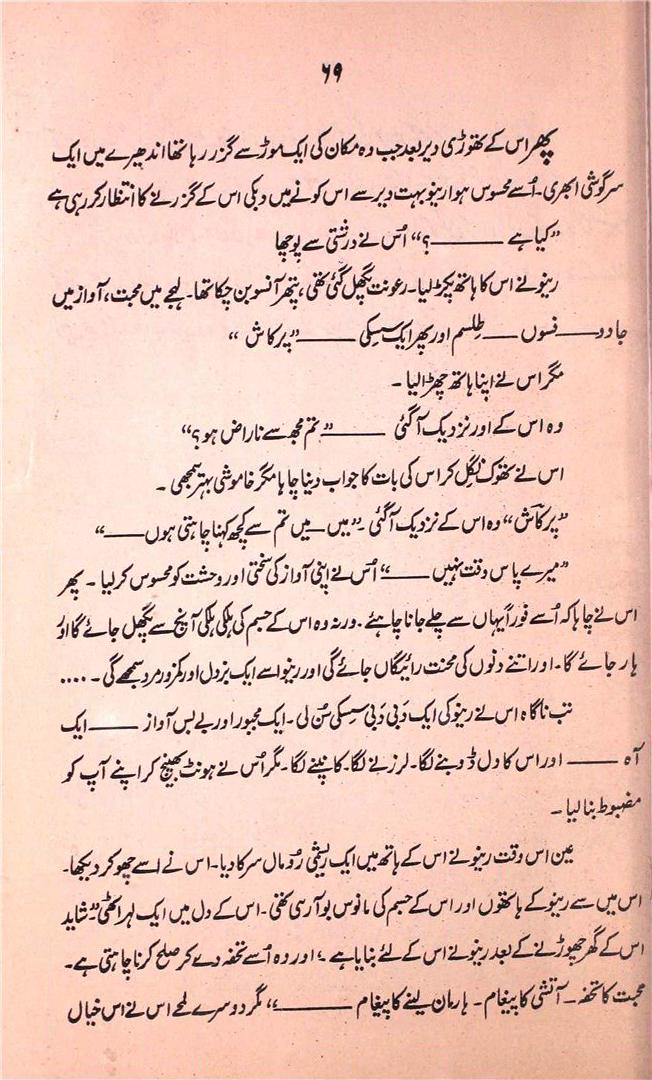 ۶۹
پھر اس کے تھوڑی دیر بعد جب وہ مکان کی ایک موڑ سے گزر رہا تھا اندھیرے میں ایک
سرگوشی ابھری۔ اُسے محسوس ہوا رینو بہت دیر سے اس کونے میں دبکی اس کے گزرنے کا انتظار کر رہی ہے
”کیا ہے ——— ؟“ اُس نے درشتی سے پوچھا
رینو نے اس کا ہاتھ پکڑ لیا۔ رعونت پگھل گئی تھی، پتھر آنسو بن چکا تھا۔ لہجے میں محبت، آواز میں
جادو —— فسوں —— طلسم اور پھر ایک سسکی ——— ”پرکاش“
مگر اس نے اپنا ہاتھ چھڑا لیا۔
وہ اس کے اور نزدیک آگئی ——— ”تم مجھ سے ناراض ہو؟“
اس نے تھوک نگل کر اس کی بات کا جواب دینا چاہا مگر خاموشی بہتر سمجھی۔
”پرکاش“ وہ اس کے نزدیک آگئی۔ ”میں — میں تم سے کچھ کہنا چاہتی ہوں ——“
”میرے پاس وقت نہیں ——“ اُس نے اپنی آواز کی سختی اور وحشت کو محسوس کر لیا۔ پھر
اس نے چاہا کہ اُسے فوراً یہاں سے چلے جانا چاہئے۔ ورنہ وہ اس کے جسم کی ہلکی ہلکی آنچ سے پگھل جائے گا اور
ہار جائے گا۔ اور اتنے دنوں کی محنت رائیگاں جائے گی اور رینو اسے ایک بزدل اور کمزور مرد سمجھے گی۔ ....
تب ناگاہ اس نے رینو کی ایک دَبی دَبی سسکی سُن لی۔ ایک مجبور اور بے بس آواز —— ایک
آہ —— اور اس کا دل ڈوبنے لگا۔ لرزنے لگا۔ کانپنے لگا۔ مگر اُس نے ہونٹ بھینچ کر اپنے آپ کو
مضبوط بنا لیا۔
عین اس وقت رینو نے اس کے ہاتھ میں ایک ریشمی رُومال سرکا دیا۔ اس نے اسے چھو کر دیکھا۔
اس میں سے رینو کے ہاتھوں اور اس کے جسم کی مانوس بو آرہی تھی۔ اس کے دل میں ایک لہر اٹھی ”شاید
اس کے گھر چھوڑنے کے بعد رینو نے اس کے لئے بنایا ہے؟ اور وہ اُسے تحفہ دے کر صلح کرنا چاہتی ہے۔
محبت کا تحفہ — آتشی کا پیغام۔ ہار مان لینے کا پیغام ———“ مگر دوسرے لمحے اس نے اس خیال